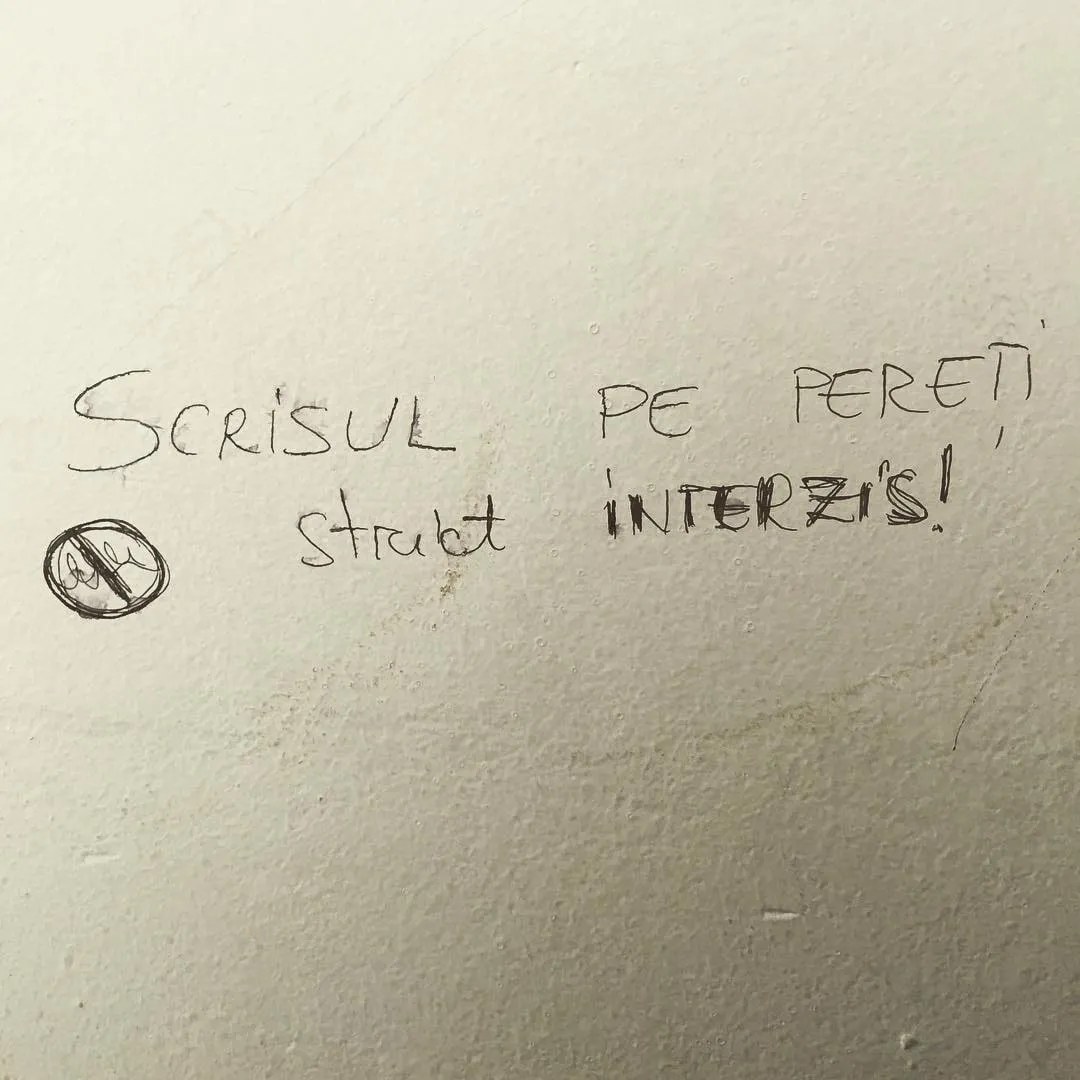 SCRiSUL PE PEREȚI
strict iNTERZiS!